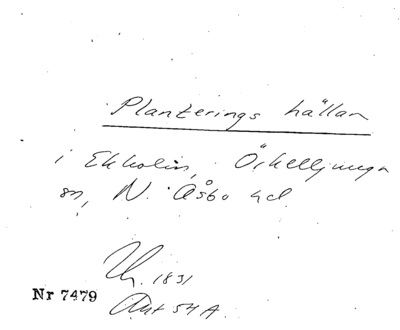 Planterings hällan
i Ekholm, Örkelljunga
sn, N. Åsbo hd.
Th. 1831
Nr 7479
Akt 54 A.